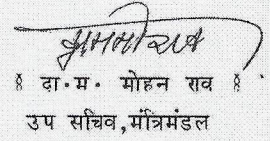 ﴾ दा.म. मोहन राव ﴿
उप सचिव,मंत्रिमंडल